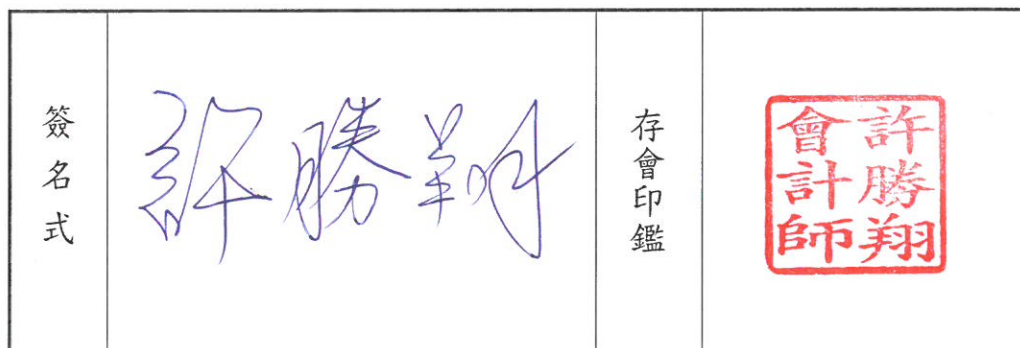 簽名式
許勝翔
存會印鑑
許勝翔
會計師